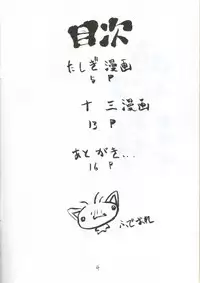 目次
たしぎ漫画
5P
十三漫画
13P
あとがき...
16P
ふでまかせ
4